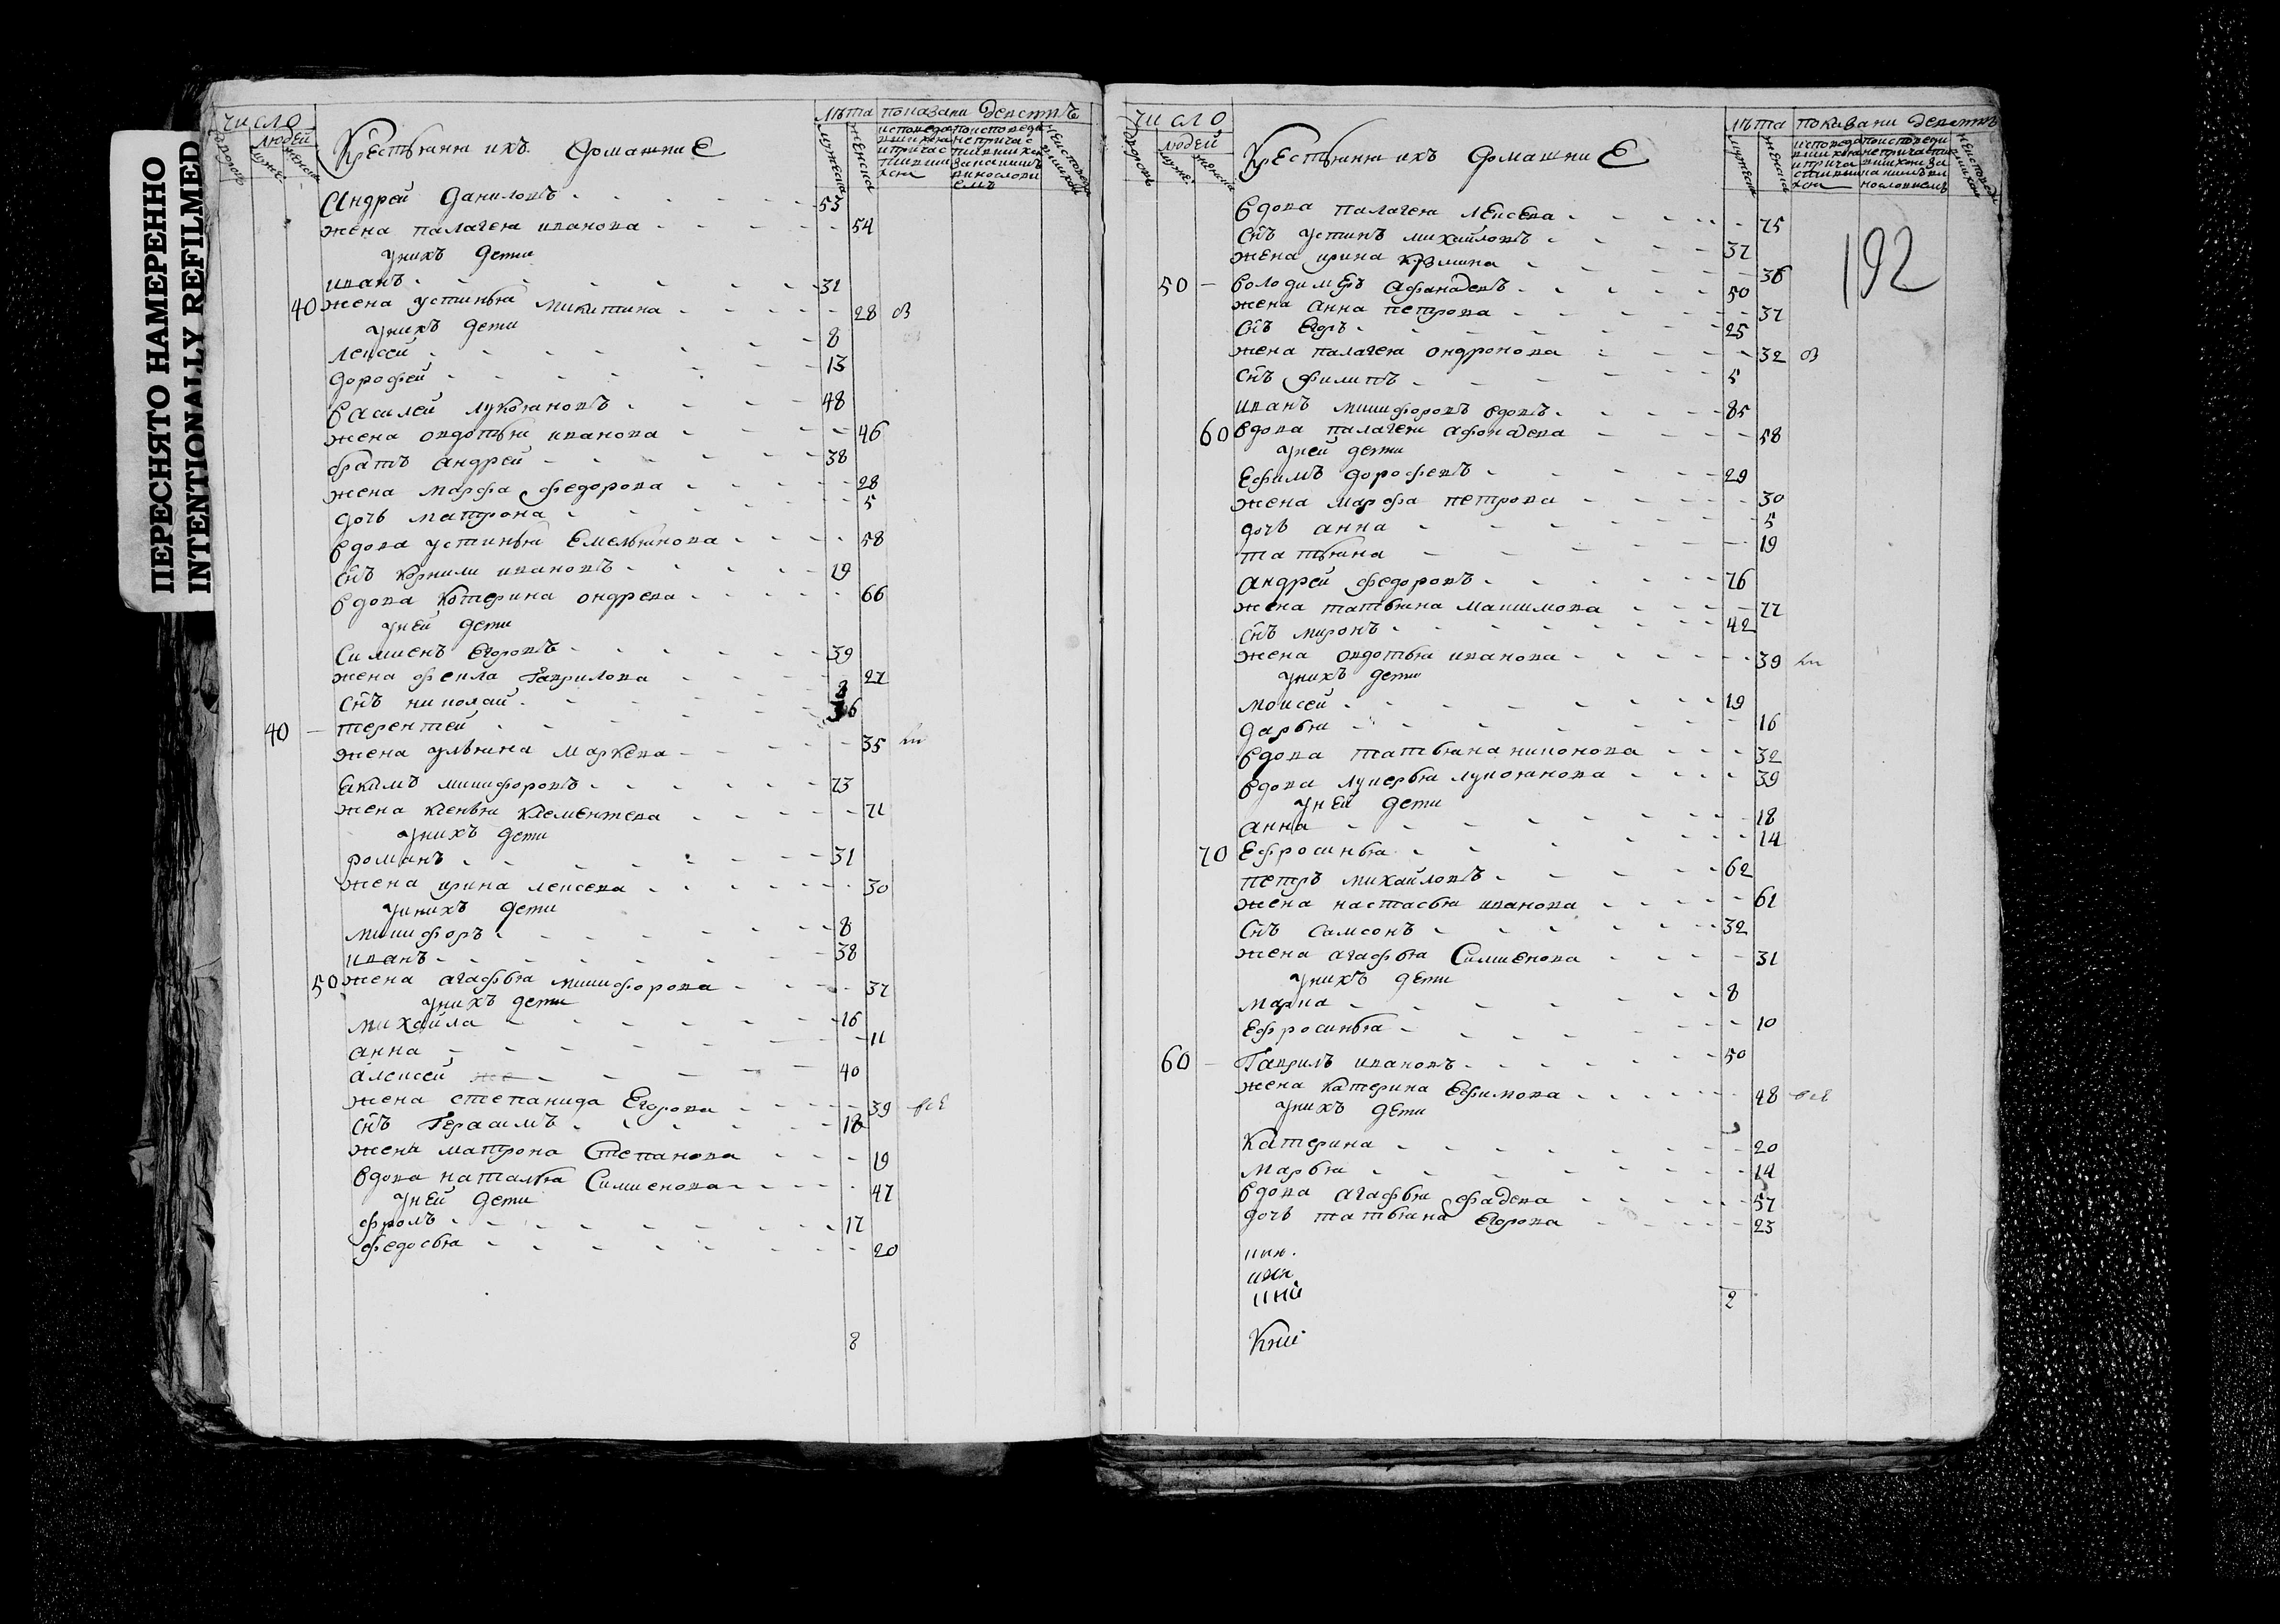 ПЕРЕСНЯТО НАМЕРЕННО
INTENTIONALLY REFILMED
число
людей
Крестьяня ихъ домашние
лѣта показани действ
Андрей Даниловъ 53
жена палагея иванова 54
унихъ дети
иванъ 31
40 жена устинья микитина 28
унихъ дети
лексей 8
дорофей 13
василей лукояновъ 48
жена овдотья иванова 46
братъ андрей 38
жена марфа федорова 28
дочь матрона 5
вдова устинья Емельянова 58
снъ корнили ивановъ 19
вдова котерина ондрева 66
уней дети
Симиенъ Егоровъ 39
жена фекла гаврилова 27
снъ николай 3
40 терентей 36
жена ульяна маркева 35
екимъ микифоровъ 73
жена ксенья клементева 71
унихъ дети
романъ 31
жена ирина лексева 30
унихъ дети
микифоръ 8
иванъ 38
50 жена агафья микифорова 37
унихъ дети
михайла 16
анна 11
алексей 40
жена степанида Егорова 39 все
снъ герасимъ 18
жена матрона Степанова 19
вдова наталья Симиенова 47
уней дети
фролъ 17
федосья 20
8
число
людей
Крестьяня ихъ домашние
лѣта показани действ
192
вдова палагея лексева 75
снъ устинъ михайловъ 37
жена ирина кузмина 36
50 володимеръ афанадевъ 50
жена анна петрова 37
снъ егоръ 25
жена палагея ондронова 32
снъ филипъ 5
иванъ микифоровъ вдовъ 85
60 вдова палагея афонадева 58
уней дети
ефимъ дорофевъ 29
жена марфа петрова 30
дочь анна 5
татьяна 19
андрей федоровъ 76
жена татьяна макимова 77
снъ миронъ 42
жена овдотья иванова 39
унихъ дети
моисей 19
дарья 16
вдова татьяна никонова 32
вдова лукерья лукоянова 39
уней дети
анна 18
70 ефросинья 14
петръ михайловъ 62
жена настасья иванова 61
снъ самсонъ 32
жена агафья Симиенова 31
унихъ дети
марка 8
ефросинья 10
60 Гаврилъ ивановъ 50
жена катерина ефимова 48 все
унихъ дети
катерина 20
марья 14
вдова агафья фадева 57
дочь татьяна егорова 23
2